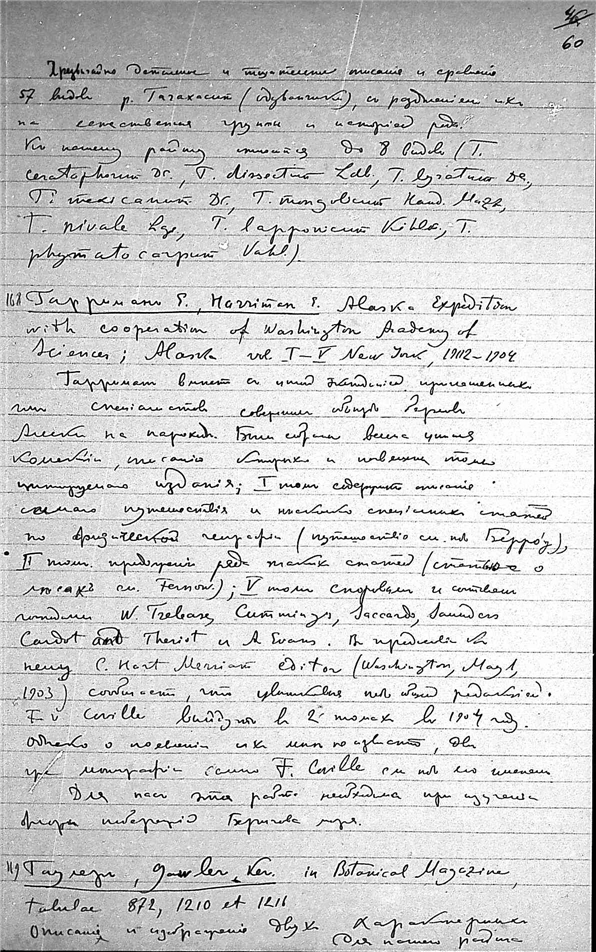 46
60
Чрезвычайно детальное и тщательное описание и сравнение
57 видов р. Taraxacum (одуванчики), с разделением их
на естественныя группы и историей рода.
Къ нашему району относятся до 8 видов (T.
ceratophorum Dc., T. dissectum Ldb., T. lyratum Dc.,
T. mexicanum Dc., T. mongolicum Hand. Mazz,
T. nivale Lge, T. lapponicum Kihlm, T.
phymatocarpum Vahl.).
118 Гарриманъ Е., Harriman E. Alaska Expedition
with cooperation of Washington Academy of
Sciences; Alaska vol I–V New York, 1902–1904
Гарриман вместе съ целой экспедицией приглашенных
им специалистов совершил объезд берегов
Аляски на пароходе. Были собраны весьма ценныя
коллекции, описанию которых и посвящены томы
цитируемаго издания; I том содержит описание
самаго путешествия и несколько специальных статей
по физической географии (путешествие см. под Берроуз),
II том. продолжение ряда таких статей (статью о
лесахъ см. Fernow); V том споровыя и составлен
W. Trelease, Cummings, Saccardo, Saunders
Cardot and Theriot и A. Evans. В предисловии къ
нему C. Hart Merriam editor (Washington, May 1,
1903) сообщает, что цветковыя под общей редакцией
F. V Coville выйдут в 2х томах в 1904 году.
Однако о появлении их мне неизвестно, две
три монографии самого F. Coville см под его именем
Для нас эта работа необходима при изучении
флоры побережий Берингова моря.
119 Gawler, Ker. in Botanical Magazine,
tabulae 872, 1210 et 1216
Описание и изображение двух характерных
Для нашего района